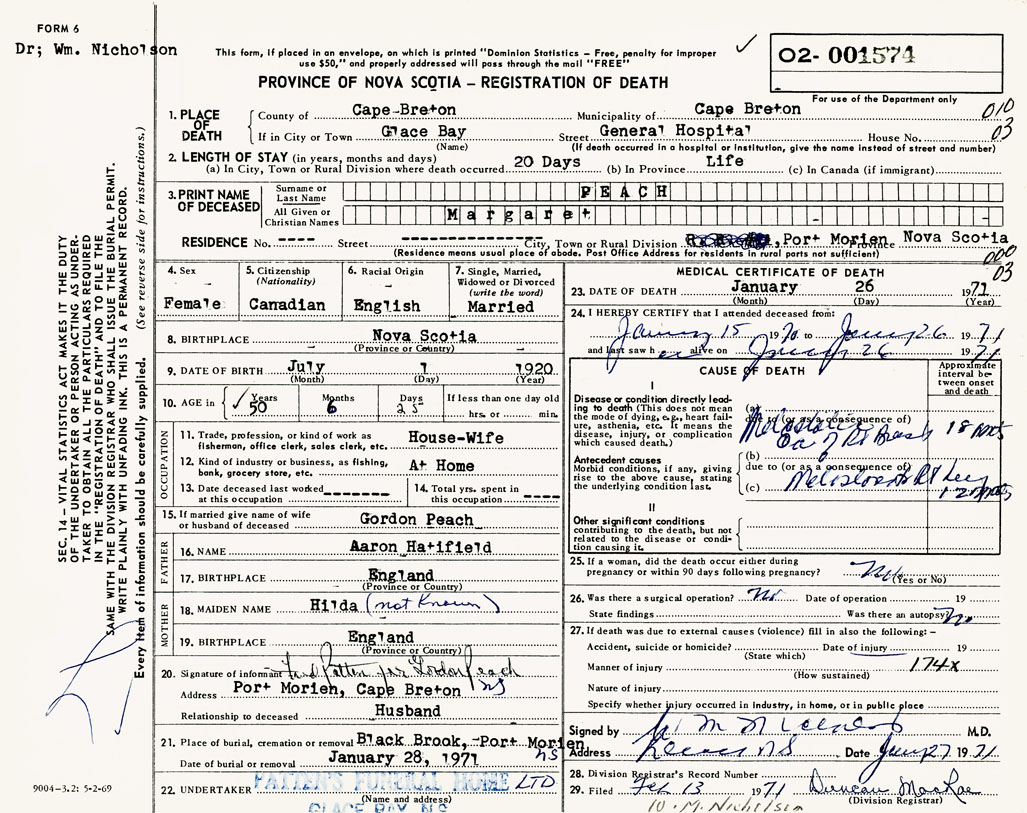 FORM 6
Dr; Wm. Nicholson
This form, if placed in an envelope, on which is printed "Dominion Statistics – Free, penalty for improper
use $50," and properly addressed will pass through the mail "FREE"
PROVINCE OF NOVA SCOTIA – REGISTRATION OF DEATH
02- 001574
For use of the Department only
010
03
1. PLACE OF DEATH
County of Cape-Breton Municipality of Cape Breton
If in City or Town Glace Bay Street General Hospital House No.
(Name) (If death occurred in a hospital or institution, give the name instead of street and number)
2. LENGTH OF STAY (in years, months and days)
(a) In City, Town or Rural Division where death occurred 20 Days (b) In Province Life (c) In Canada (if immigrant)
3. PRINT NAME OF DECEASED
Surname or Last Name PEACH
All Given or Christian Names Margaret
RESIDENCE No. ---- Street ---------------- City, Town or Rural Division , Port Morien Province Nova Scotia
(Residence means usual place of abode. Post Office Address for residents in rural parts not sufficient)
000
03
4. Sex
Female
5. Citizenship
(Nationality)
Canadian
6. Racial Origin
English
7. Single, Married,
Widowed or Divorced
(write the word)
Married
8. BIRTHPLACE Nova Scotia
(Province or Country)
9. DATE OF BIRTH July 1 1920
(Month) (Day) (Year)
10. AGE in Years 50 Months 6 Days 25 If less than one day old
hrs. or min.
OCCUPATION
11. Trade, profession, or kind of work as
fisherman, office clerk, sales clerk, etc. House-Wife
12. Kind of industry or business, as fishing,
bank, grocery store, etc. At Home
13. Date deceased last worked
at this occupation --------
14. Total yrs. spent in
this occupation ----
15. If married give name of wife
or husband of deceased Gordon Peach
FATHER
16. NAME Aaron Hatifield
17. BIRTHPLACE England
(Province or Country)
MOTHER
18. MAIDEN NAME Hilda (not Known)
19. BIRTHPLACE England
(Province or Country)
20. Signature of informant
Address Port Morien, Cape Breton NS
Relationship to deceased Husband
21. Place of burial, cremation or removal Black Brook, -Port Morien,
NS
Date of burial or removal January 28, 1971
22. UNDERTAKER PATTEN'S FUNERAL HOME LTD
(Name and address)
GLACE BAY, N.S.
MEDICAL CERTIFICATE OF DEATH
23. DATE OF DEATH January 26 1971
(Month) (Day) (Year)
24. I HEREBY CERTIFY that I attended deceased from:
January 15 1970 to 26 1971
and last saw her alive on 26 1971
CAUSE OF DEATH
Approximate
interval be-
tween onset
and death
I
Disease or condition directly lead-
ing to death (This does not
mean the mode of dying, e.g., heart fail-
ure, asthenia, etc. It means the
disease, injury, or complication
which caused death.)
(a)
due to (or as a consequence of)
18
Antecedent causes
Morbid conditions, if any, giving
rise to the above cause, stating
the underlying condition last.
(b)
due to (or as a consequence of)
(c)
12
II
Other significant conditions
contributing to the death, but not
related to the disease or condi-
tion causing it.
25. If a woman, did the death occur either during
pregnancy or within 90 days following pregnancy? No
(Yes or No)
26. Was there a surgical operation? No Date of operation 19
State findings Was there an autopsy? No
27. If death was due to external causes (violence) fill in also the following: –
Accident, suicide or homicide? Date of injury 19
(State which)
Manner of injury 174x
(How sustained)
Nature of injury
Specify whether injury occurred in industry, in home, or in public place
Signed by M.D.
Address NS Date 27 1971
28. Division Registrar's Record Number
29. Filed Feb 13 1971 Duncan MacRae
(Division Registrar)
W. M. Nicholson
SEC. 14 – VITAL STATISTICS ACT MAKES IT THE DUTY
OF THE UNDERTAKER OR PERSON ACTING AS UNDER-
TAKER TO OBTAIN ALL THE PARTICULARS REQUIRED
IN THE "REGISTRATION OF DEATH" AND TO FILE THE
SAME WITH THE DIVISION REGISTRAR WHO SHALL ISSUE THE BURIAL PERMIT.
WRITE PLAINLY WITH UNFADING INK. THIS IS A PERMANENT RECORD.
Every item of information should be carefully supplied. (See reverse side for instructions.)
9004-3.2: 5-2-69